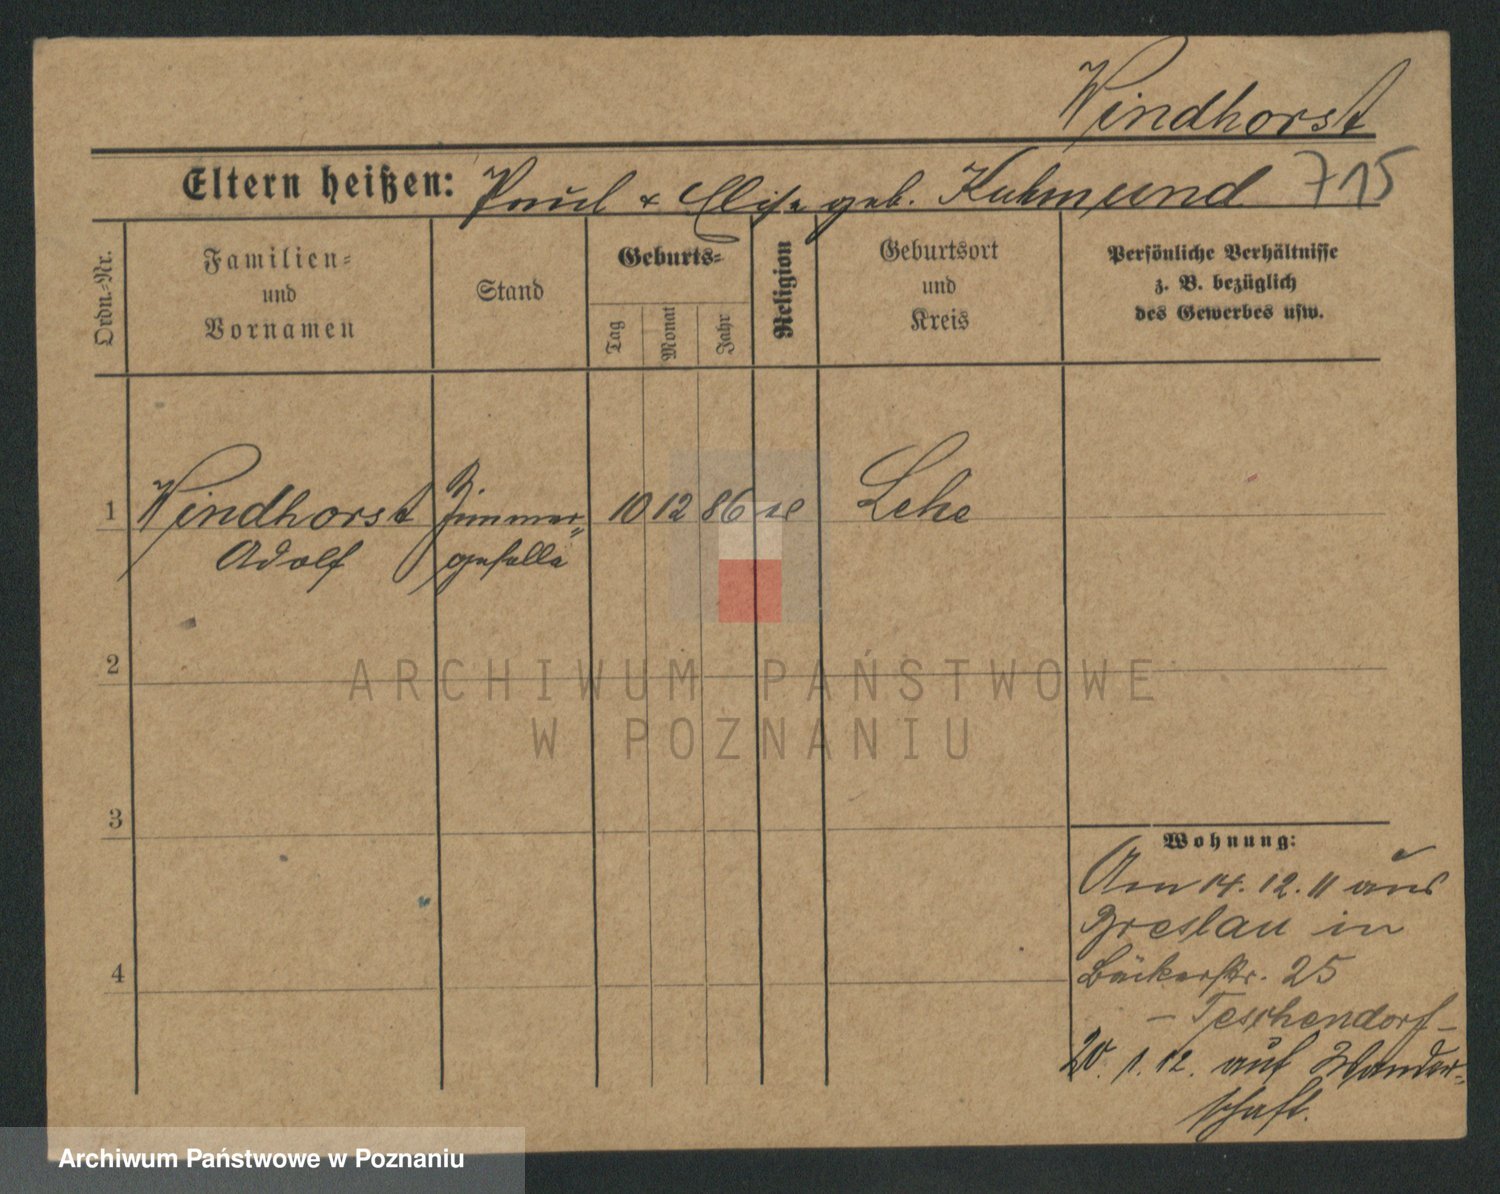 Windhorst
Eltern heißen: Paul & Elise geb. Kuhmund 715
Ordn.-Nr.
Familien-
und
Vornamen
Stand
Geburts-
Tag
Monat
Jahr
Religion
Geburtsort
und
Kreis
Persönliche Verhältnisse
z. B. bezüglich
des Gewerbes usw.
1 Windhorst Zimmer- 10 12 86 Lehe
Adolf geselle
2
ARCHIWUM PAŃSTWOWE
W POZNANIU
3
Wohnung:
Am 14. 12. 11 aus
Breslau in
Bäckerstr. 25
– Teschendorf –
4
20. 1. 12. auf Wander-
schaft.
Archiwum Państwowe w Poznaniu